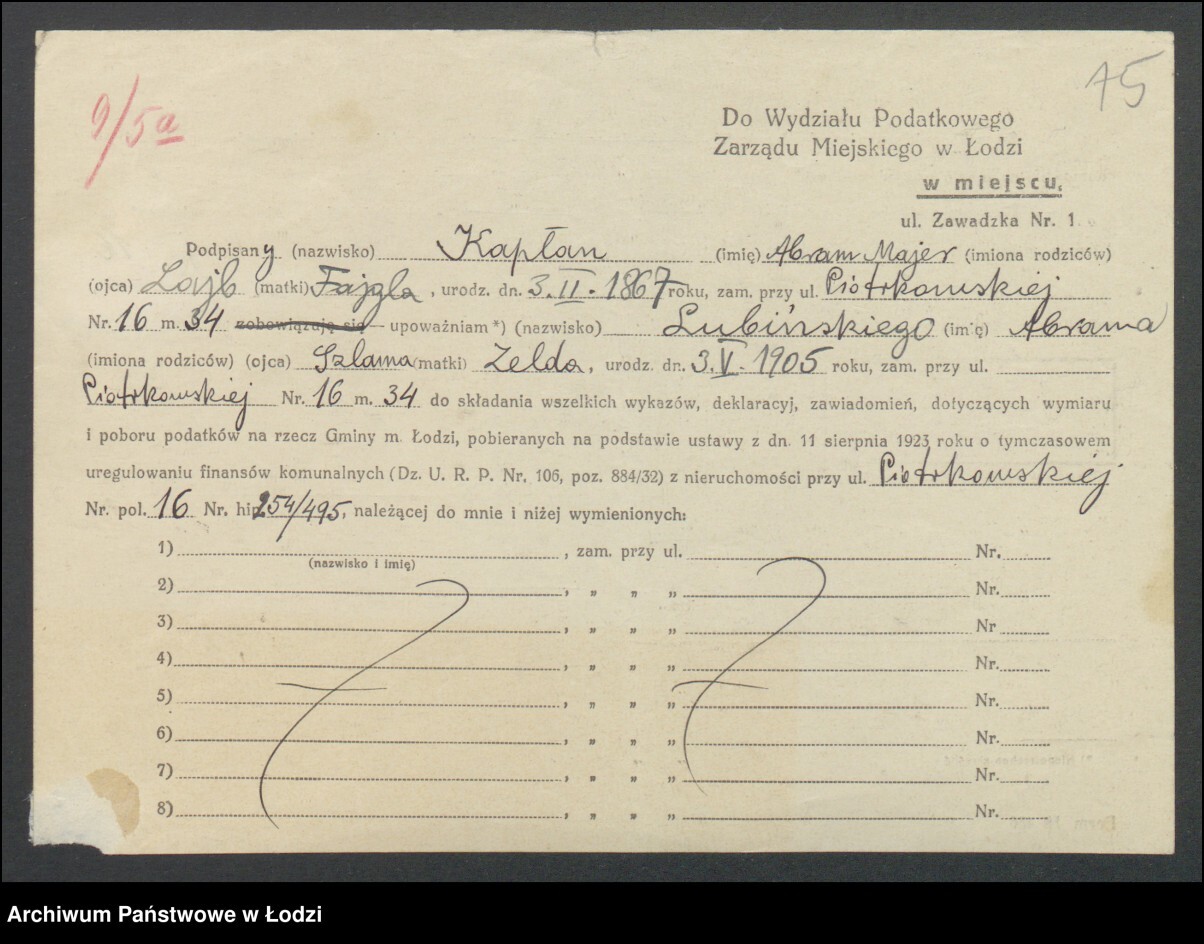 9/5a
75
Do Wydziału Podatkowego
Zarządu Miejskiego w Łodzi
w miejscu,
ul. Zawadzka Nr. 1
Podpisany (nazwisko) Kapłan (imię) Abram Majer (imiona rodziców)
(ojca) Lajb (matki) Fajgla, urodz. dn. 3.II.1867 roku, zam. przy ul. Piotrkowskiej
Nr. 16 m. 34 zobowiązuję się – upoważniam *) (nazwisko) Lubińskiego (imię) Abrama
(imiona rodziców) (ojca) Szlama (matki) Zelda, urodz. dn. 3.V.1905 roku, zam. przy ul.
Piotrkowskiej Nr. 16 m. 34 do składania wszelkich wykazów, deklaracyj, zawiadomień, dotyczących wymiaru
i poboru podatków na rzecz Gminy m. Łodzi, pobieranych na podstawie ustawy z dn. 11 sierpnia 1923 roku o tymczasowem
uregulowaniu finansów komunalnych (Dz. U. R. P. Nr. 106, poz. 884/32) z nieruchomości przy ul. Piotrkowskiej
Nr. pol. 16 Nr. hip. 254/495, należącej do mnie i niżej wymienionych:
1) , zam. przy ul. Nr.
(nazwisko i imię)
2) , „ „ „ Nr.
3) , „ „ „ Nr
4) , „ „ „ Nr.
5) , „ „ „ Nr.
6) , „ „ „ Nr.
7) , „ „ „ Nr.
8) , „ „ „ Nr.
Archiwum Państwowe w Łodzi